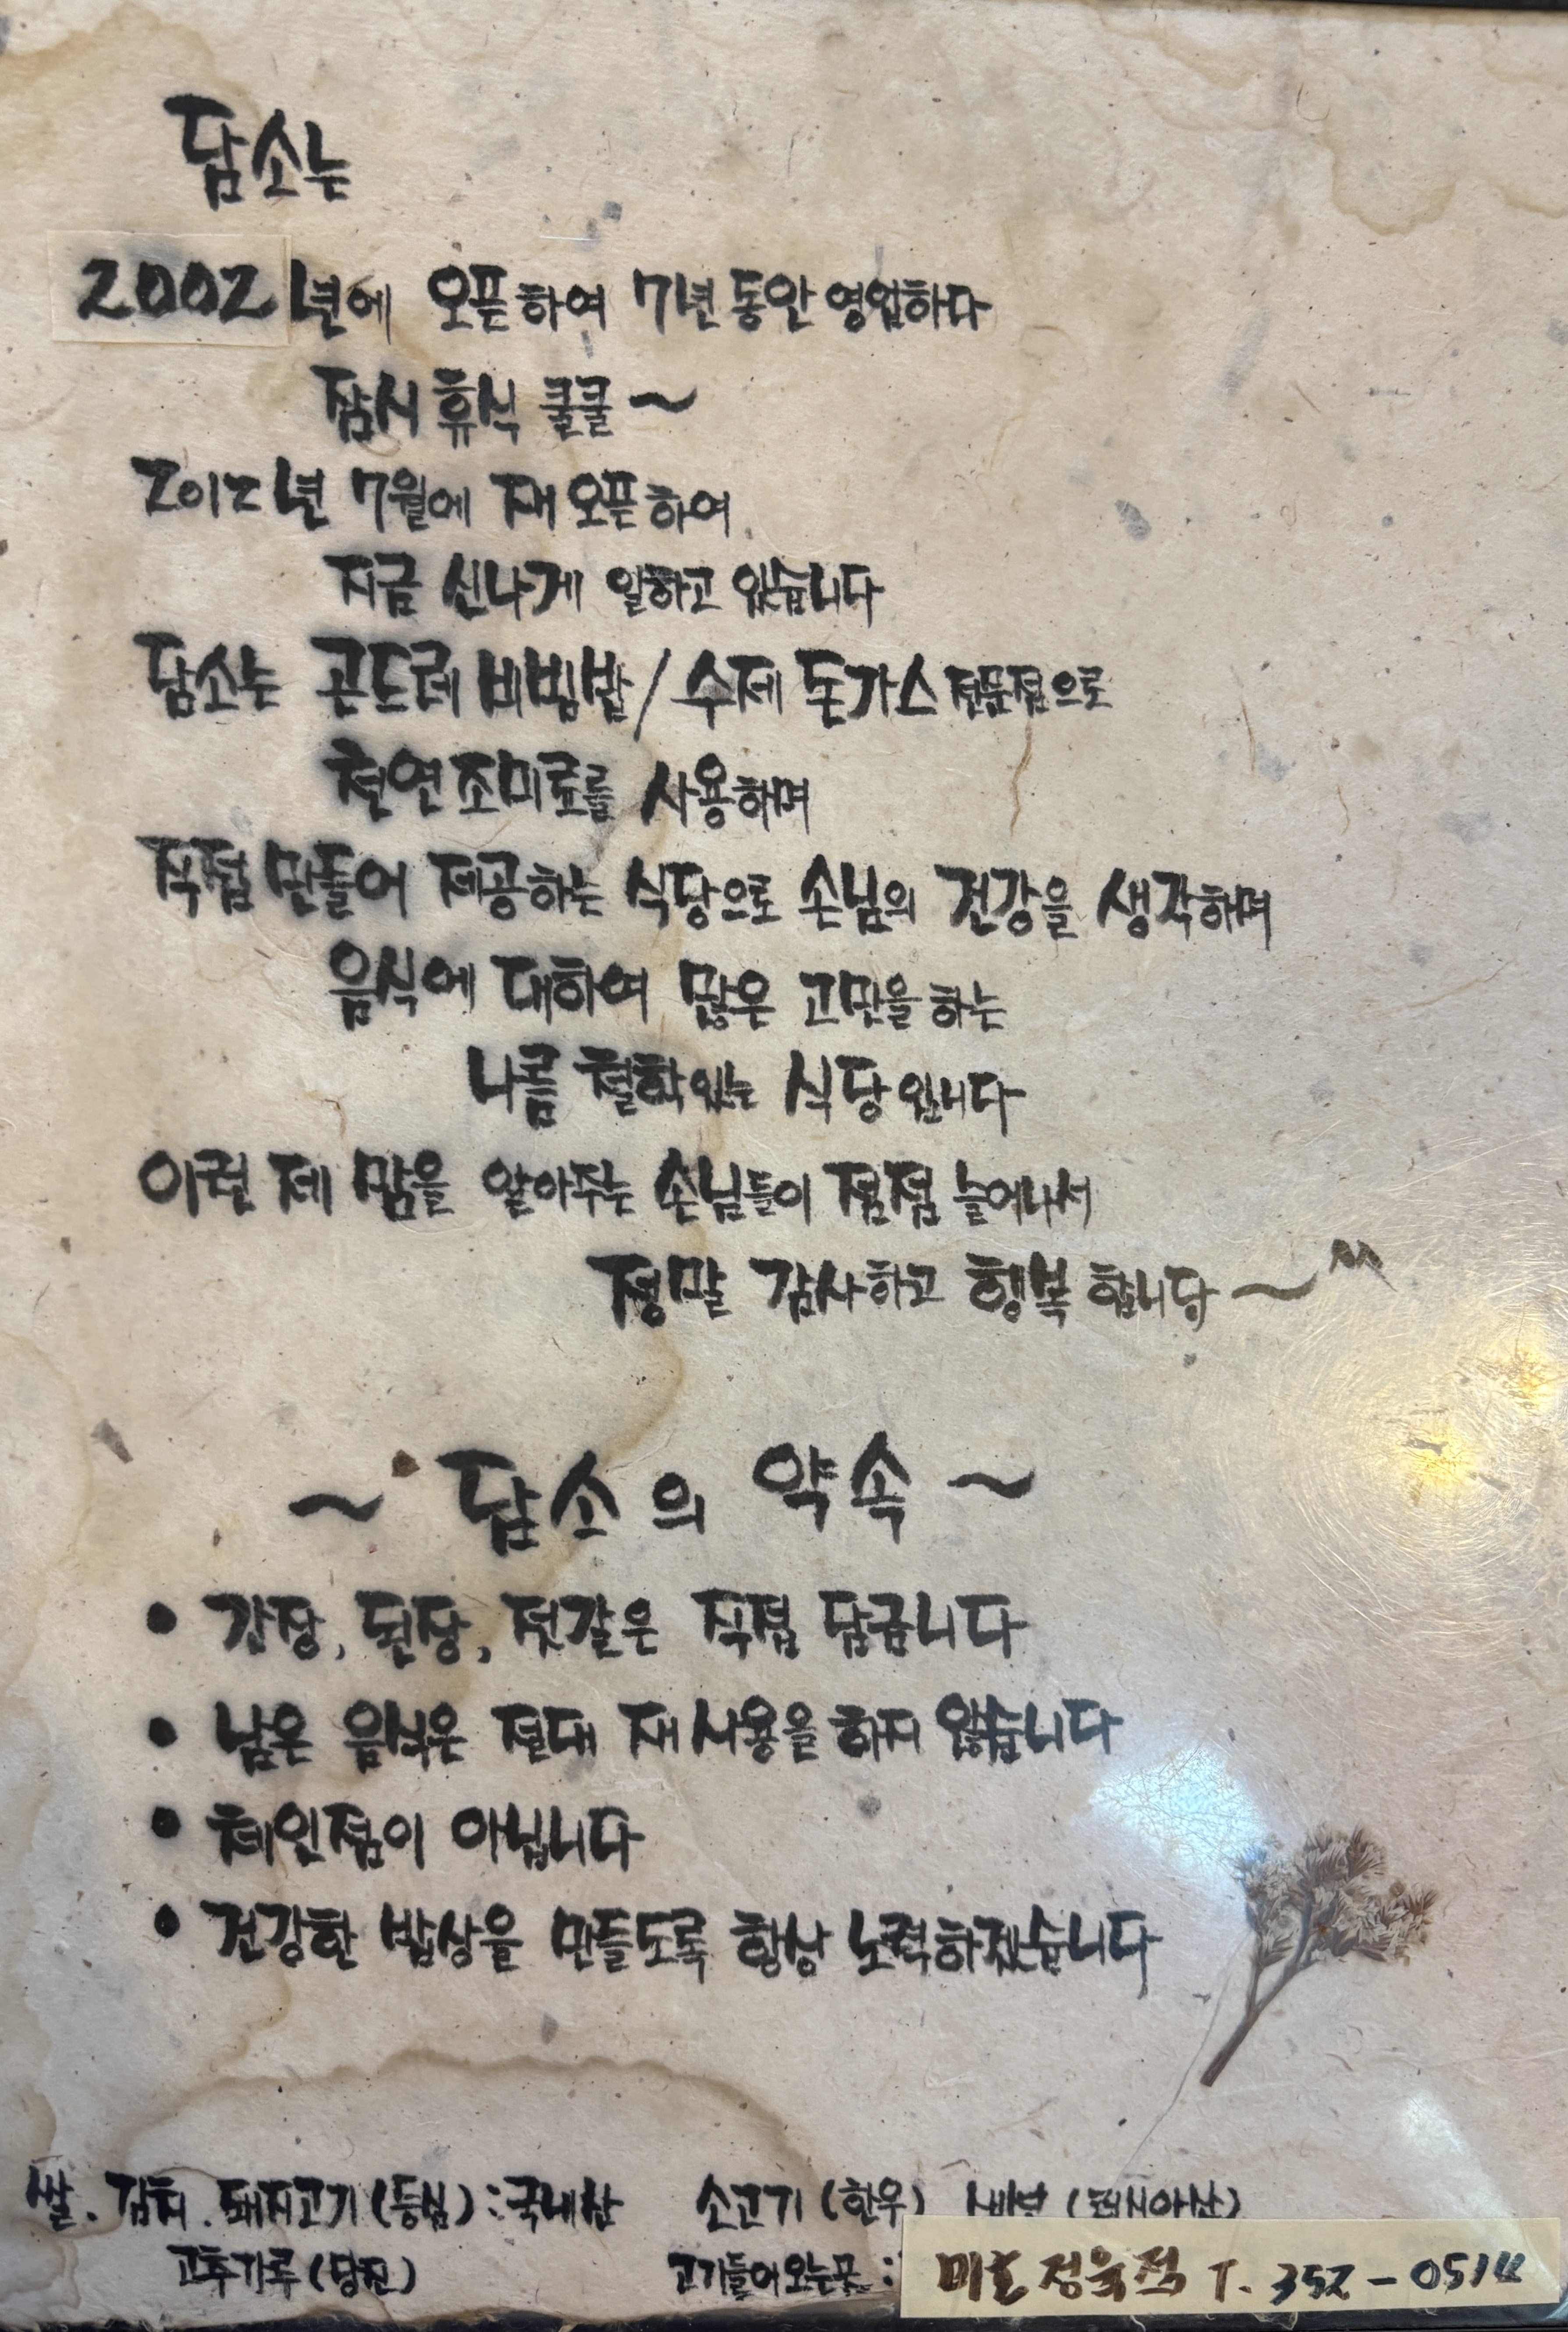 담소는
2002년에 오픈하여 7년동안 영업하다
잠시 휴식 쿨쿨~
2012년 7월에 재오픈하여
지금 신나게 일하고 있습니다
담소는 곤드레 비빔밥/수제 돈가스 전문점으로
천연조미료를 사용하며
직접 만들어 제공하는 식당으로 손님의 건강을 생각하며
음식에 대하여 많은 고민을 하는
나름 철학있는 식당입니다
이런 제 맘을 알아주는 손님들이 점점 늘어나서
정말 감사하고 행복합니다~^^
~ 담소의 약속 ~
• 간장, 된장, 젓갈은 직접 담급니다
• 남은 음식은 절대 재사용을 하지 않습니다
• 체인점이 아닙니다
• 건강한 밥상을 만들도록 항상 노력하겠습니다
쌀. 김치. 돼지고기(등심):국내산 소고기(한우) (러시아산)
고추가루(당진) 고기들어오는곳: 정육점 T. 352-05